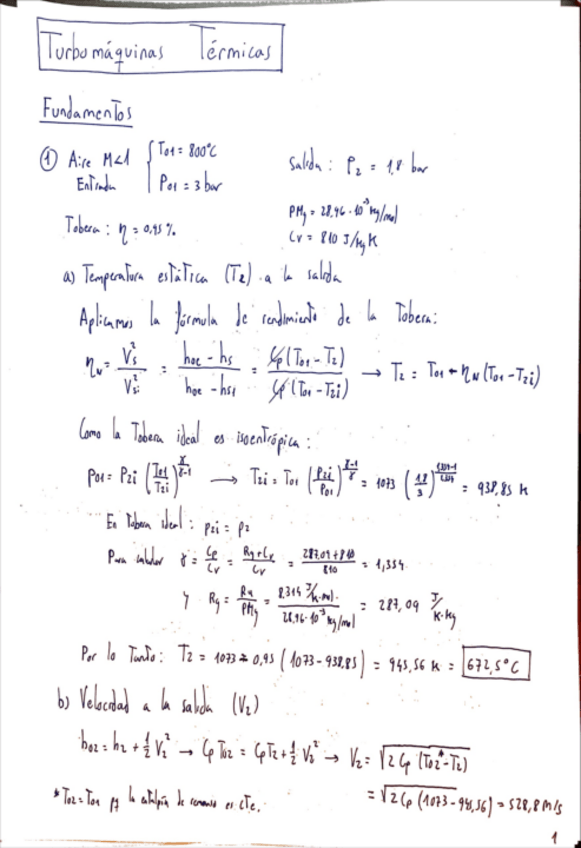 Turbomáquinas Térmicas
Fundamentos
① Aire M<1 { T01 = 800°C
Entrada P01 = 3 bar
Salida: P2 = 1,8 bar
PMg = 28,96·10^-3 kg/mol
Tobera: η = 0,95 %
Cv = 810 J/kg K
a) Temperatura estática (T2) a la salida
Aplicamos la fórmula de rendimiento de la Tobera:
ηN = Vs²/Vsi² = (hoe - hs)/(hoe - hsi) = Cp(T01 - T2)/Cp(T01 - T2i) → T2 = T01 - ηN (T01 - T2i)
Como la Tobera ideal es isoentrópica:
P01 = P2i (T01/T2i)^(γ/(γ-1)) → T2i = T01 (P2i/P01)^((γ-1)/γ) = 1073 (1,8/3)^((1,354-1)/1,354) = 938,85 K
En Tobera ideal: P2i = P2
Para calcular γ = Cp/Cv = (Rg+Cv)/Cv = (287,09+810)/810 = 1,354
y Rg = Ru/PMg = (8.314 J/K·mol)/(28,96·10^-3 kg/mol) = 287,09 J/K·kg
Por lo Tanto: T2 = 1073 - 0,95 (1073 - 938,85) = 945,56 K = 672,5°C
b) Velocidad a la salida (V2)
h02 = h2 + ½ V2² → Cp T02 = Cp T2 + ½ V2² → V2 = √(2 Cp (T02* - T2))
= √(2 Cp (1073 - 945,56)) = 528,8 m/s
* T02 = T01 pq la entalpía de remanso es cte.
1